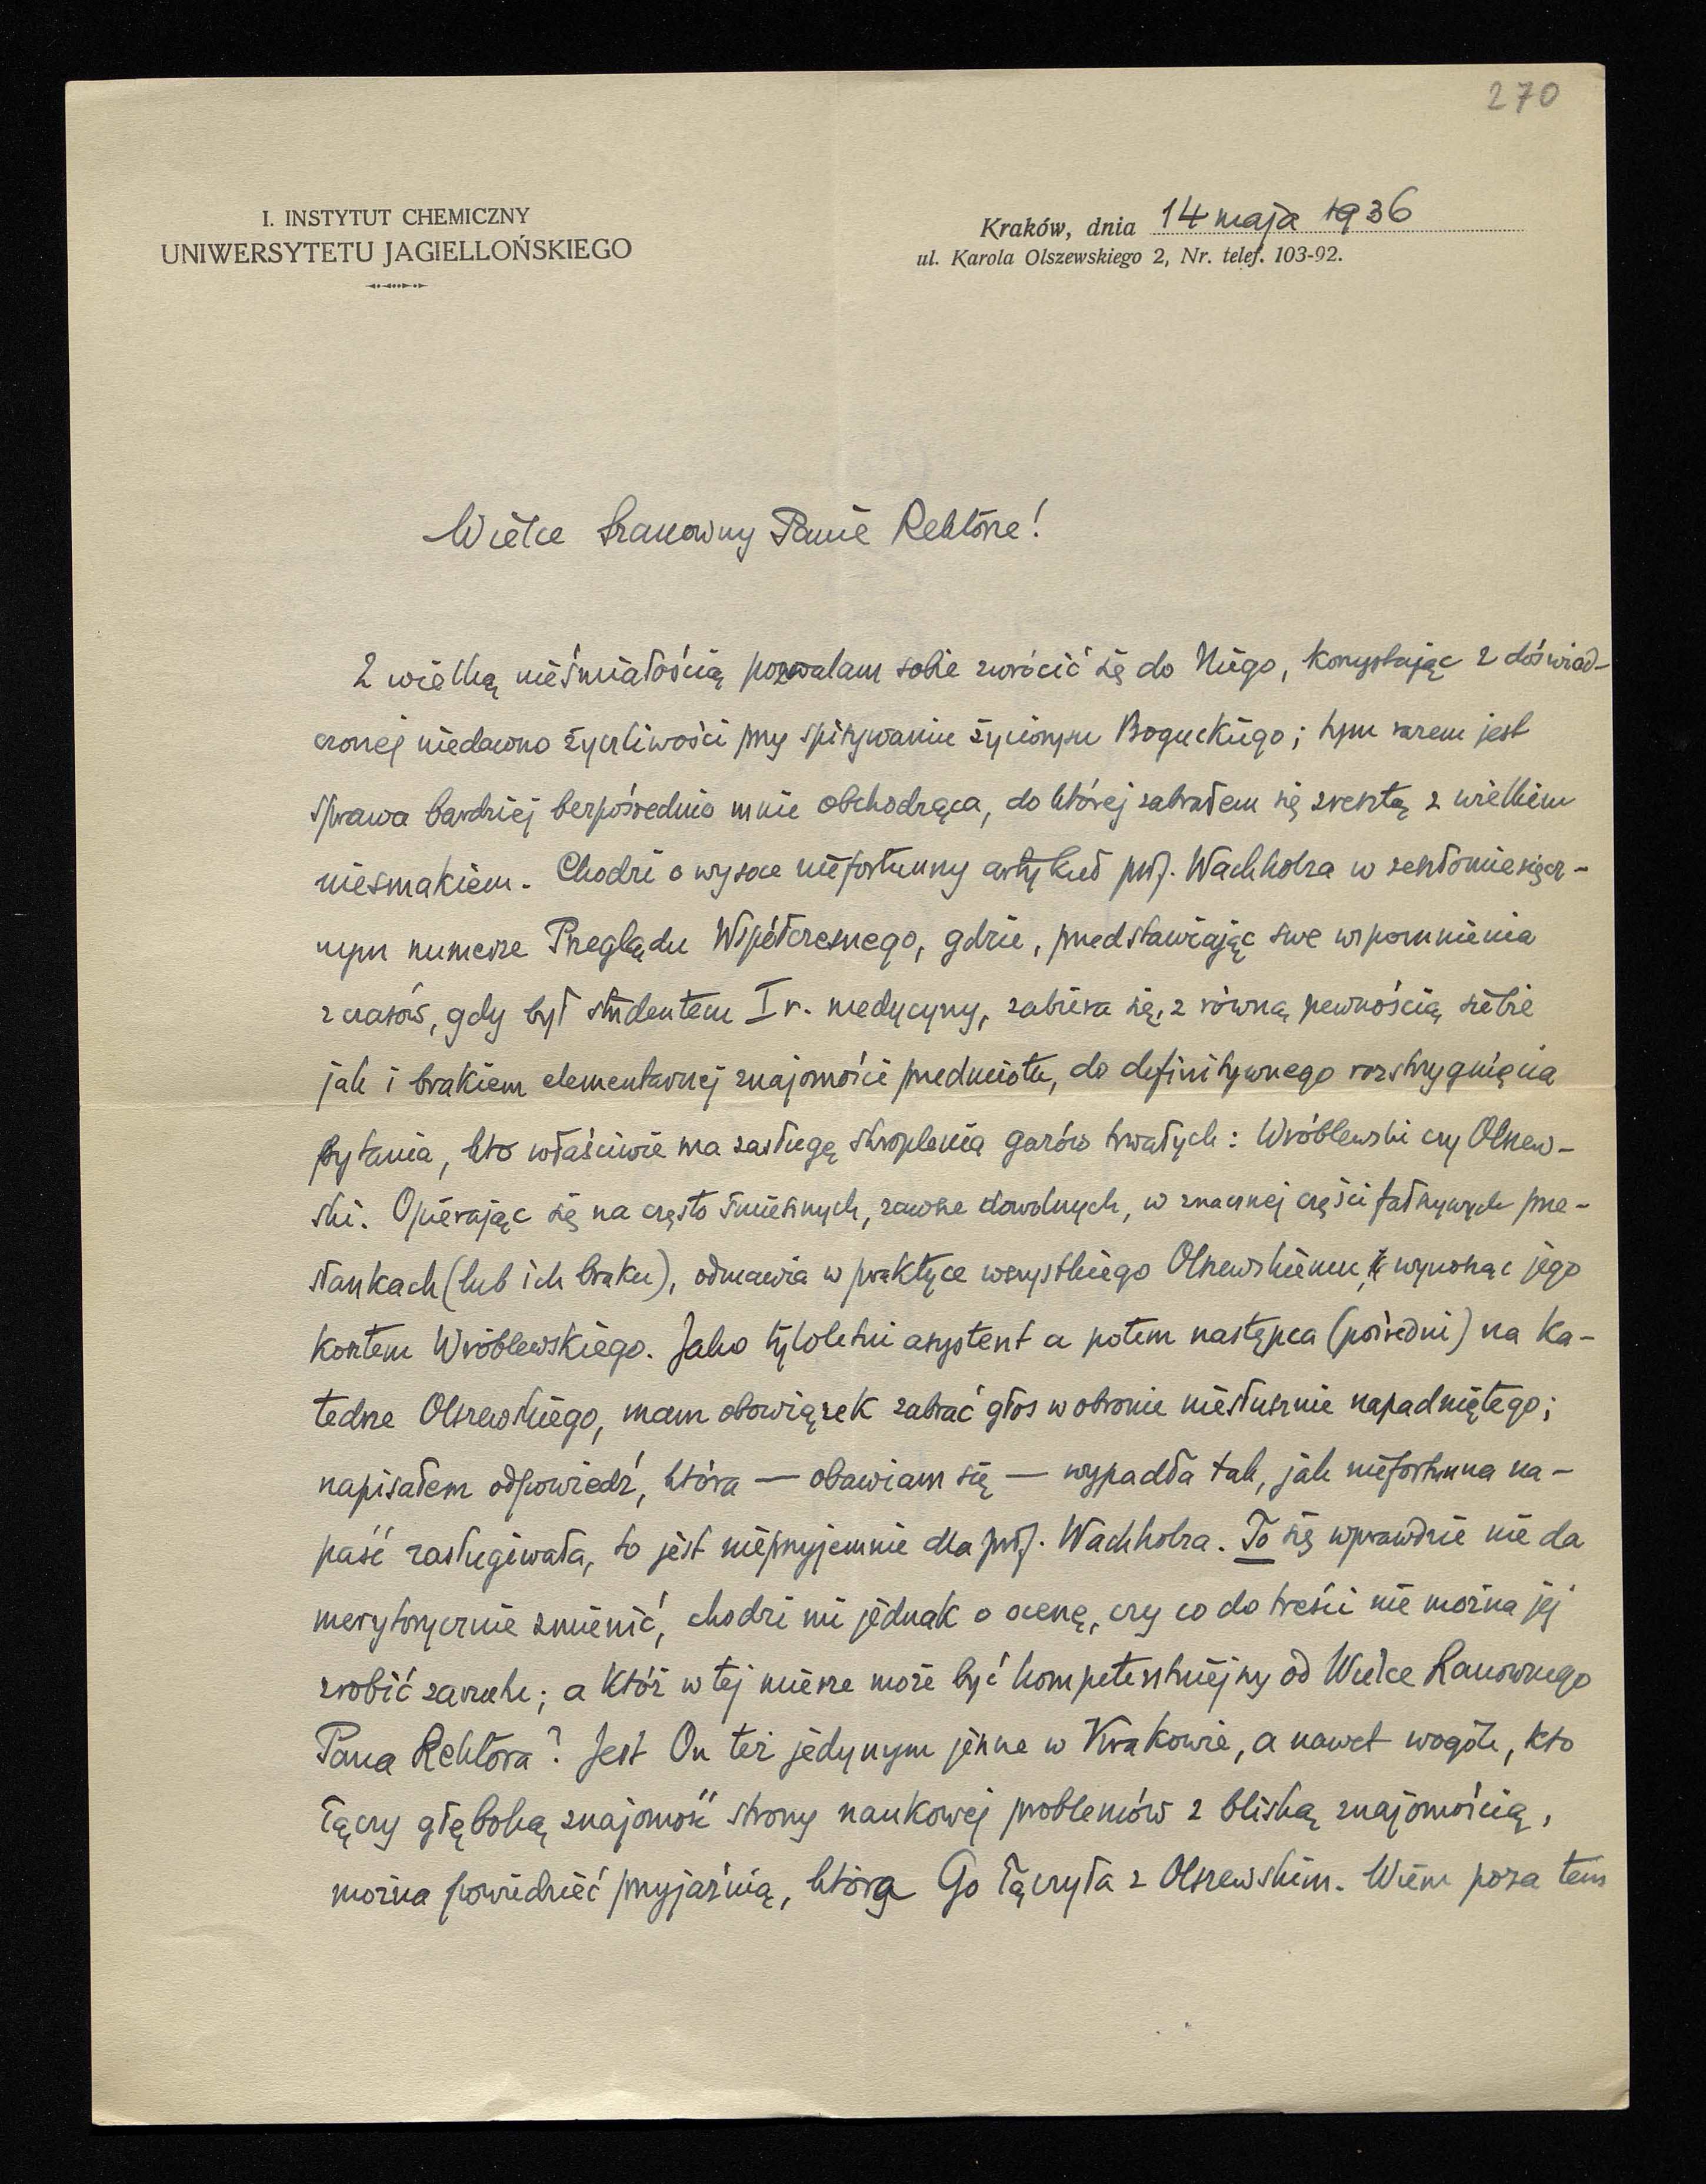 270
I. INSTYTUT CHEMICZNY
UNIWERSYTETU JAGIELLOŃSKIEGO
Kraków, dnia 14 maja 1936
ul. Karola Olszewskiego 2, Nr. telef. 103-92.
Wielce Szanowny Panie Rektorze!
Z wielką nieśmiałością pozwalam sobie zwrócić się do Niego, korzystając z doświad-
czonej niedawno życzliwości przy spisywaniu życiorysu Boguckiego; tym razem jest
sprawa bardziej bezpośrednio mnie obchodząca, do której zabrałem się zresztą z wielkiem
niesmakiem. Chodzi o wysoce niefortunny artykuł prof. Wachholza w zeszłomiesięcz-
nym numerze Przeglądu Współczesnego, gdzie, przedstawiając swe wspomnienia
z czasów, gdy był studentem I r. medycyny, zabiera się, z równą pewnością siebie
jak i brakiem elementarnej znajomości przedmiotu, do definitywnego rozstrzygnięcia
pytania, kto właściwie ma zasługę skroplenia gazów trwałych: Wróblewski czy Olszew-
ski. Opierając się na często śmiesznych, zawsze dowolnych, w znacznej części fałszywych prze-
słankach (lub ich braku), odmawia w praktyce wszystkiego Olszewskiemu, wynosząc jego
kosztem Wróblewskiego. Jako tyloletni asystent a potem następca (pośredni) na ka-
tedrze Olszewskiego, mam obowiązek zabrać głos w obronie niesłusznie napadniętego;
napisałem odpowiedź, która — obawiam się — wypadła tak, jak niefortunna na-
paść zasługiwała, to jest nieprzyjemnie dla prof. Wachholza. To się wprawdzie nie da
merytorycznie zmienić, chodzi mi jednak o ocenę, czy co do treści nie można jej
zrobić zarzutu; a któż w tej mierze może być kompetentniejszy od Wielce Szanownego
Pana Rektora? Jest On też jedynym jeszcze w Krakowie, a nawet wogóle, kto
łączy głęboką znajomość strony naukowej problemów z bliską znajomością,
można powiedzieć przyjaźnią, która Go łączyła z Olszewskim. Wiem poza tem